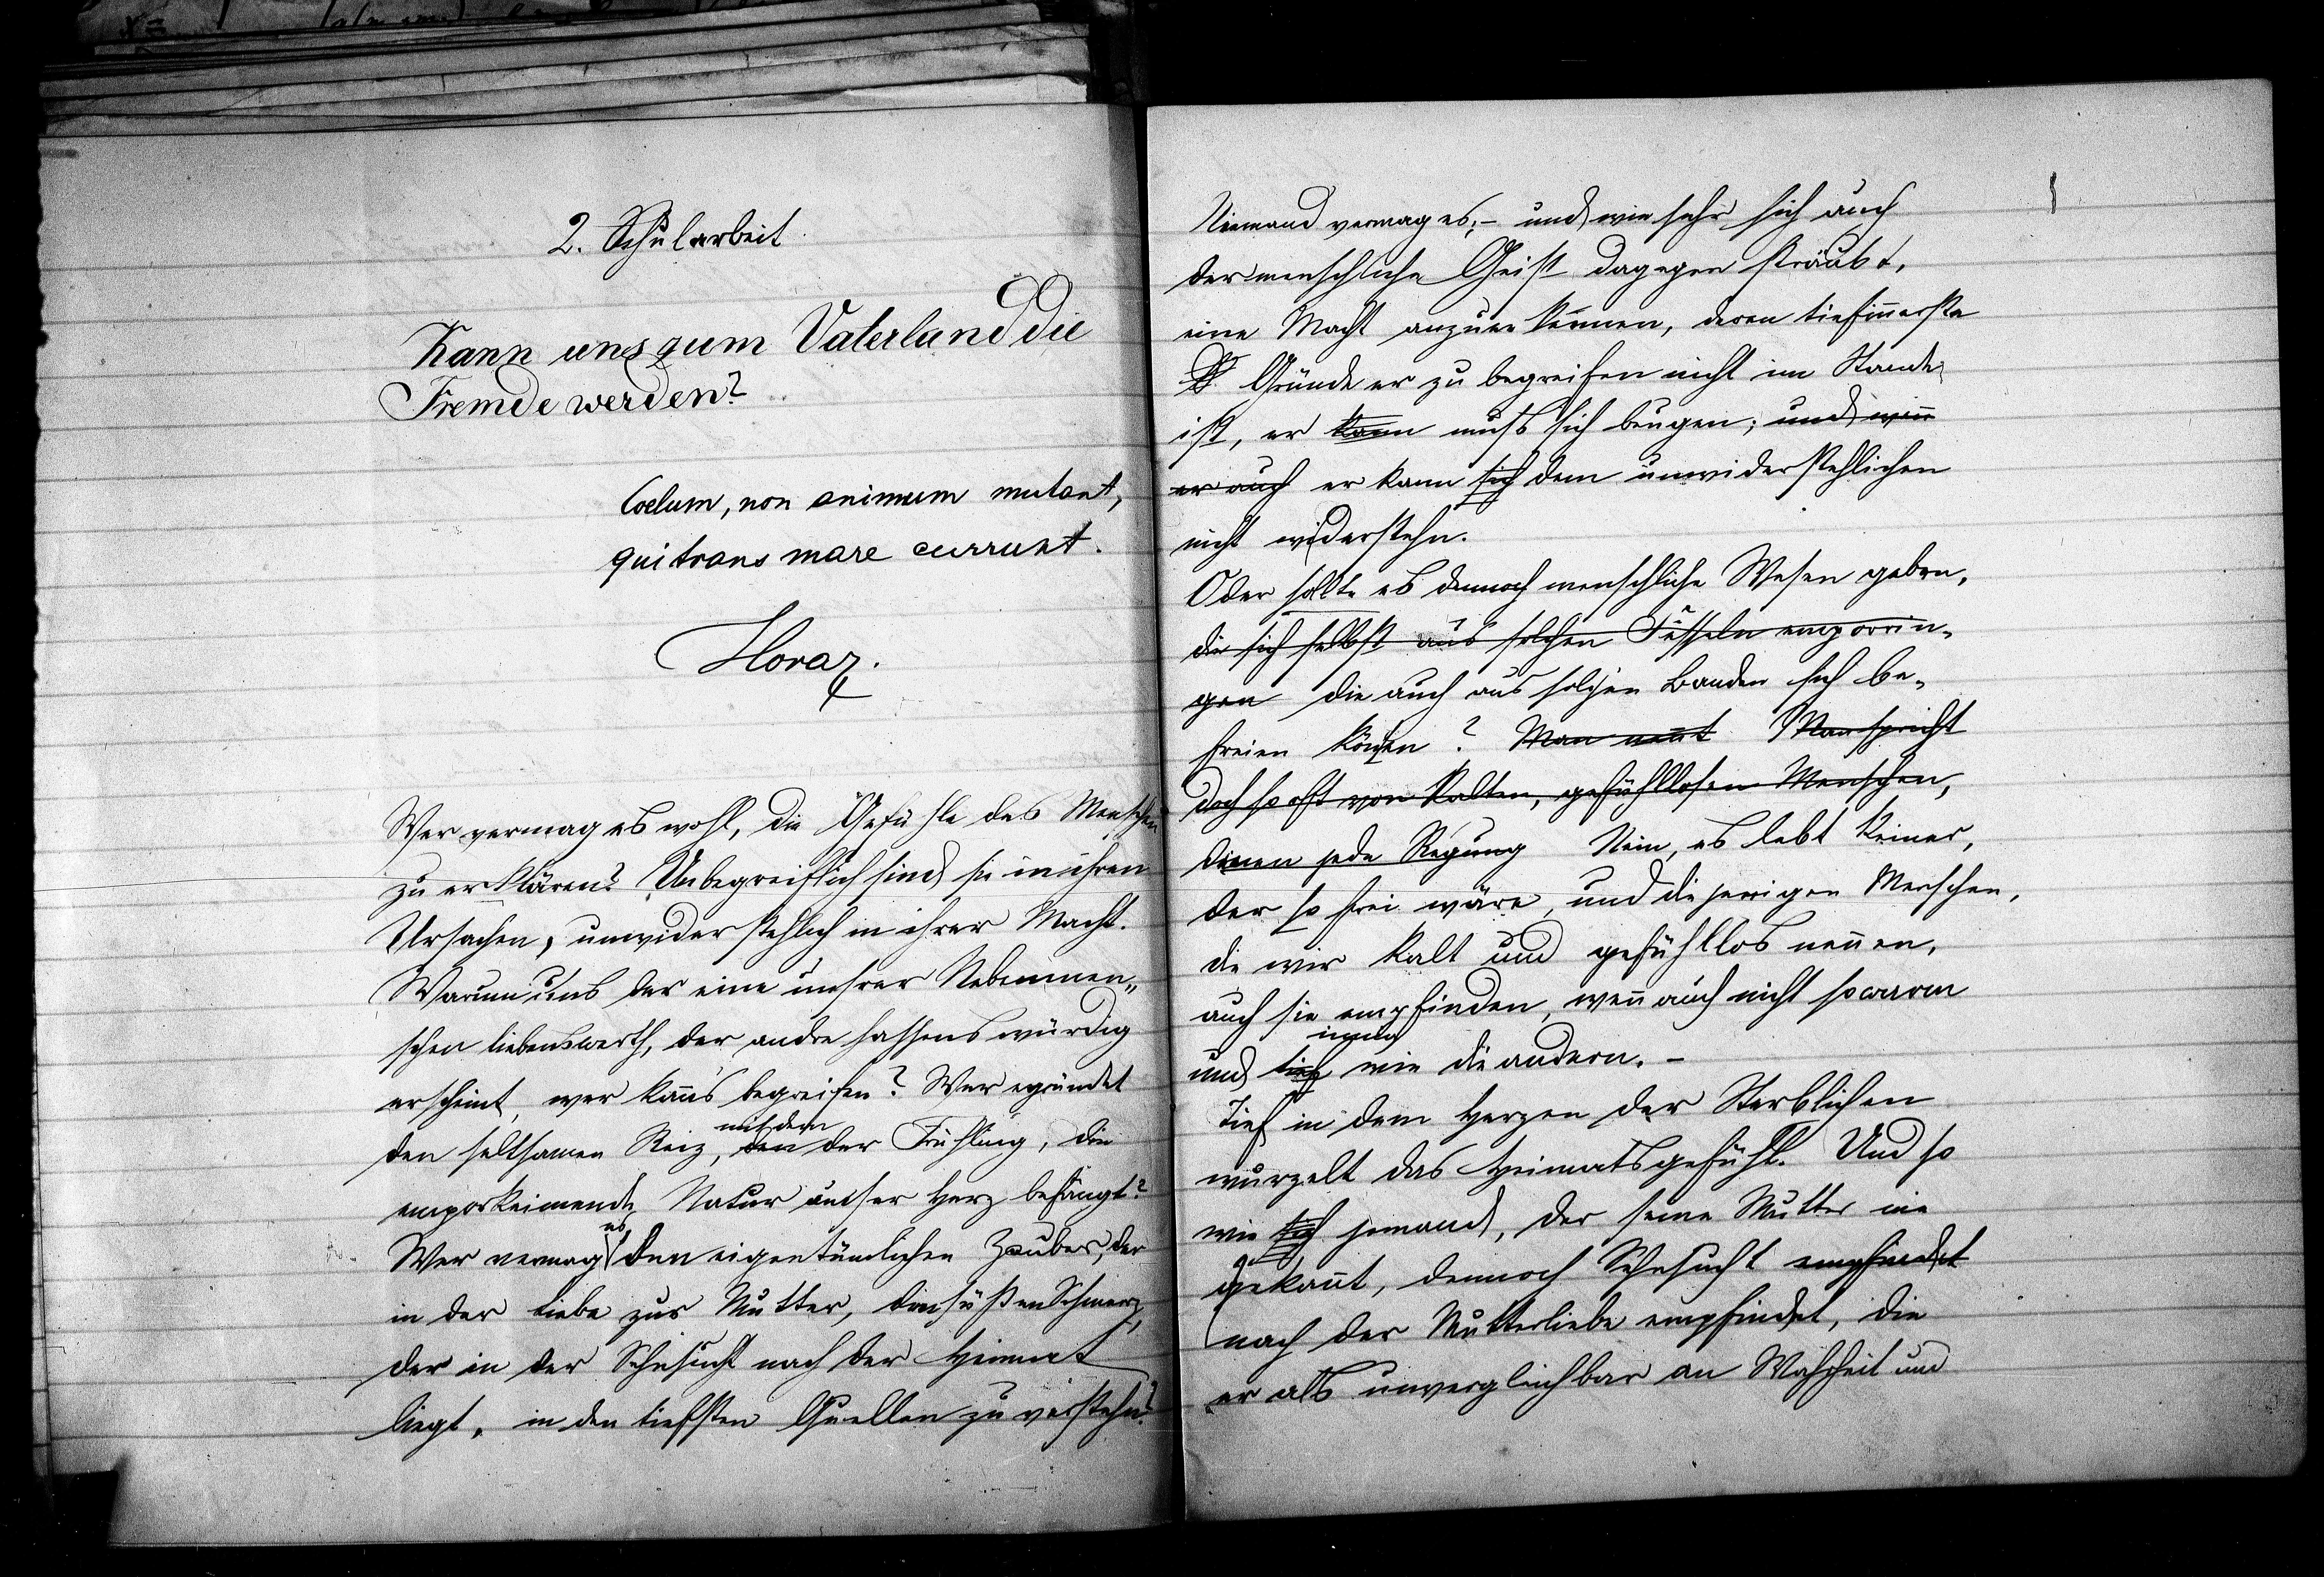 2. Schularbeit.
Kann uns zum Vaterland die
Fremde werden?
Coelum, non animum mutant,
qui trans mare currunt.
Horaz.
Wer vermag es wohl, die Gefühle des Menschen
zu erklären? Unbegreiflich sind sie in ihren
Ursachen, unwiderstehlich in ihrer Macht.
Warum uns der eine unsrer Nebenmen-
schen liebenswerth, der andre hassenswürdig
erscheint, wer kann's begreifen? Wer ergründet
mit dem
den seltsamen Reiz, den der Frühling, die
emporkeimende Natur unser Herz befängt?
es
Wer vermag den eigentümlichen Zauber, der
in der Liebe zur Mutter, den süßen Schmerz,
der in der Sehnsucht nach der Heimat
liegt, in den tiefsten Quellen zu verstehn?
Niemand vermag es; – und wie sehr sich auch
der menschliche Geist dagegen sträubt,
eine Macht anzuerkennen, deren tiefinnerste
Gründe er zu begreifen nicht im Stande
ist, er kann muß sich beugen; und wenn
er auch er kann sich dem unwiderstehlichen
nicht widerstehn.
Oder sollte es dennoch menschliche Wesen geben,
die sich selbst aus solchen Fesseln emporrin-
gen die auch aus solchen Banden sich be-
freien können? Man nennt Man spricht
doch so oft von kalten, gefühllosen Menschen,
denen jede Regung Nein, es lebt keiner,
der so frei wäre, und diejenigen Menschen,
die wir kalt und gefühllos nennen,
auch sie empfinden, wenn auch nicht so warm
innig
und tief wie die andern. –
Tief in dem Herzen der Sterblichen
wurzelt das Heimatsgefühl. Und so
wie sich jemand, der seine Mutter nie
gekannt, dennoch Sehnsucht empfindet
nach der Mutterliebe empfindet, die
er als unvergleichbar an Wahrheit und